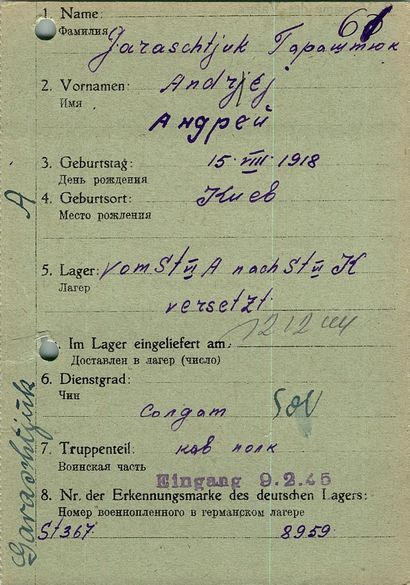 1. Name: Garaschtjuk Гараштюк 61
Фамилия
2. Vornamen: Andrjej
Имя
Андрей
3. Geburtstag: 15. VIII. 1918
День рождения
4. Geburtsort: Киев
Место рождения
A
5. Lager: vom St VI A nach St VI K
Лагер
versetzt
12 12 44
Im Lager eingeliefert am:
Доставлен в лагер (число)
6. Dienstgrad:
Чин
солдат
7. Truppenteil: кав полк
Воинская часть
Eingang 9.2.45
8. Nr. der Erkennungsmarke des deutschen Lagers:
Номер военнопленного в германском лагере
St 367 8959
Garaschtjuk